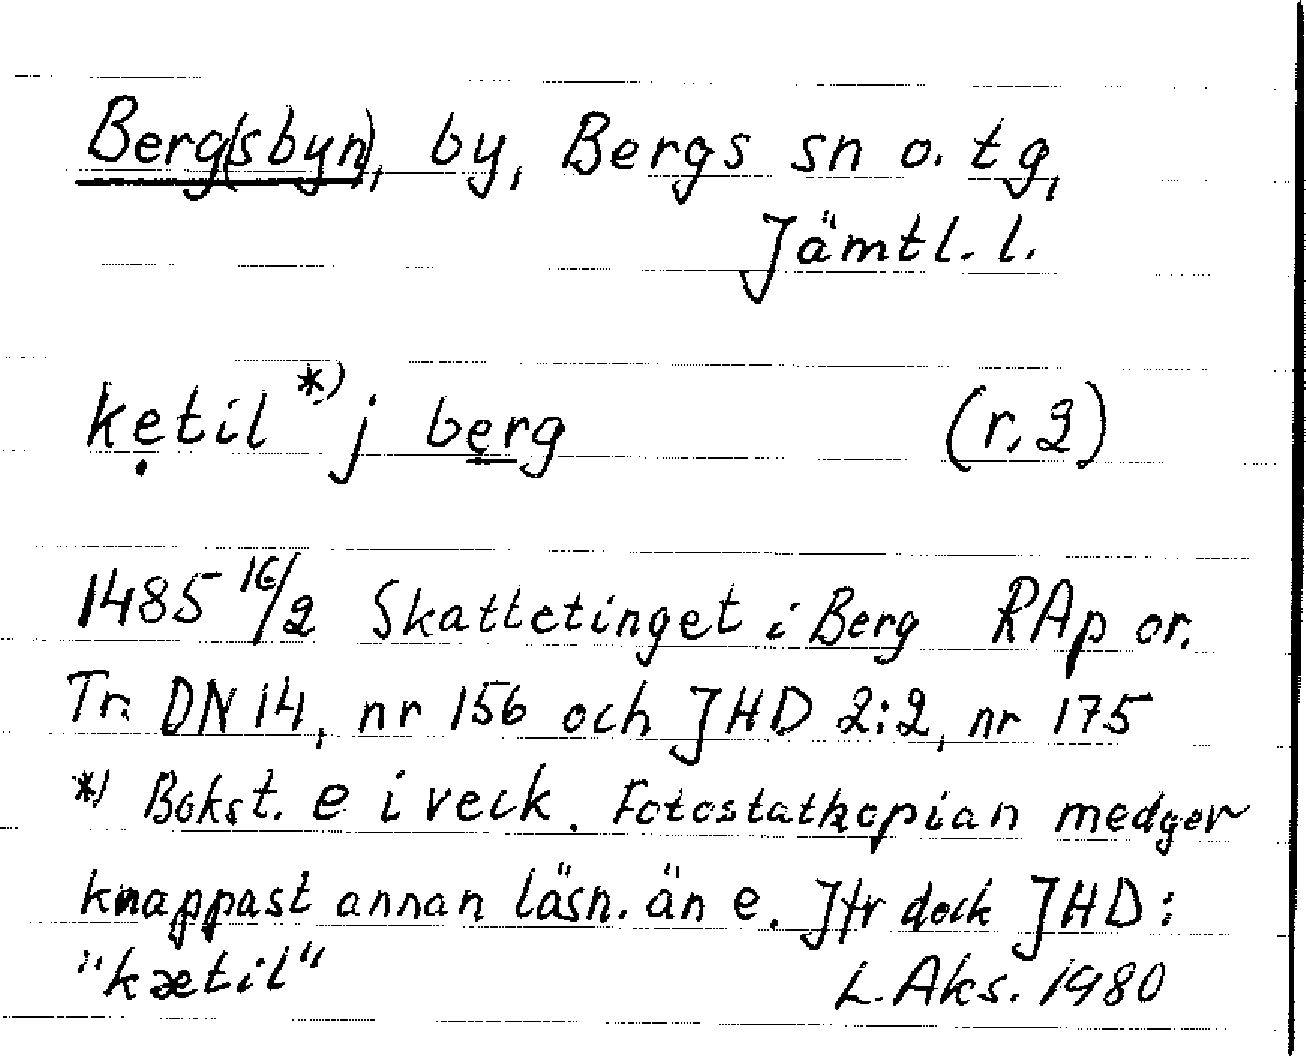 Berg(sbyn), by, Bergs sn o. tg,
Jämtl. l.
kẹtil *) j berg (r. 2)
1485 16/2 Skattetinget i Berg RAp or.
Tr. DN 14, nr 156 och JHD 2:2, nr 175
*) Bokst. e i veck. Fotostatkopian medger
knappast annan läsn. än e. Jfr dock JHD:
"kætil" L. Aks. 1980